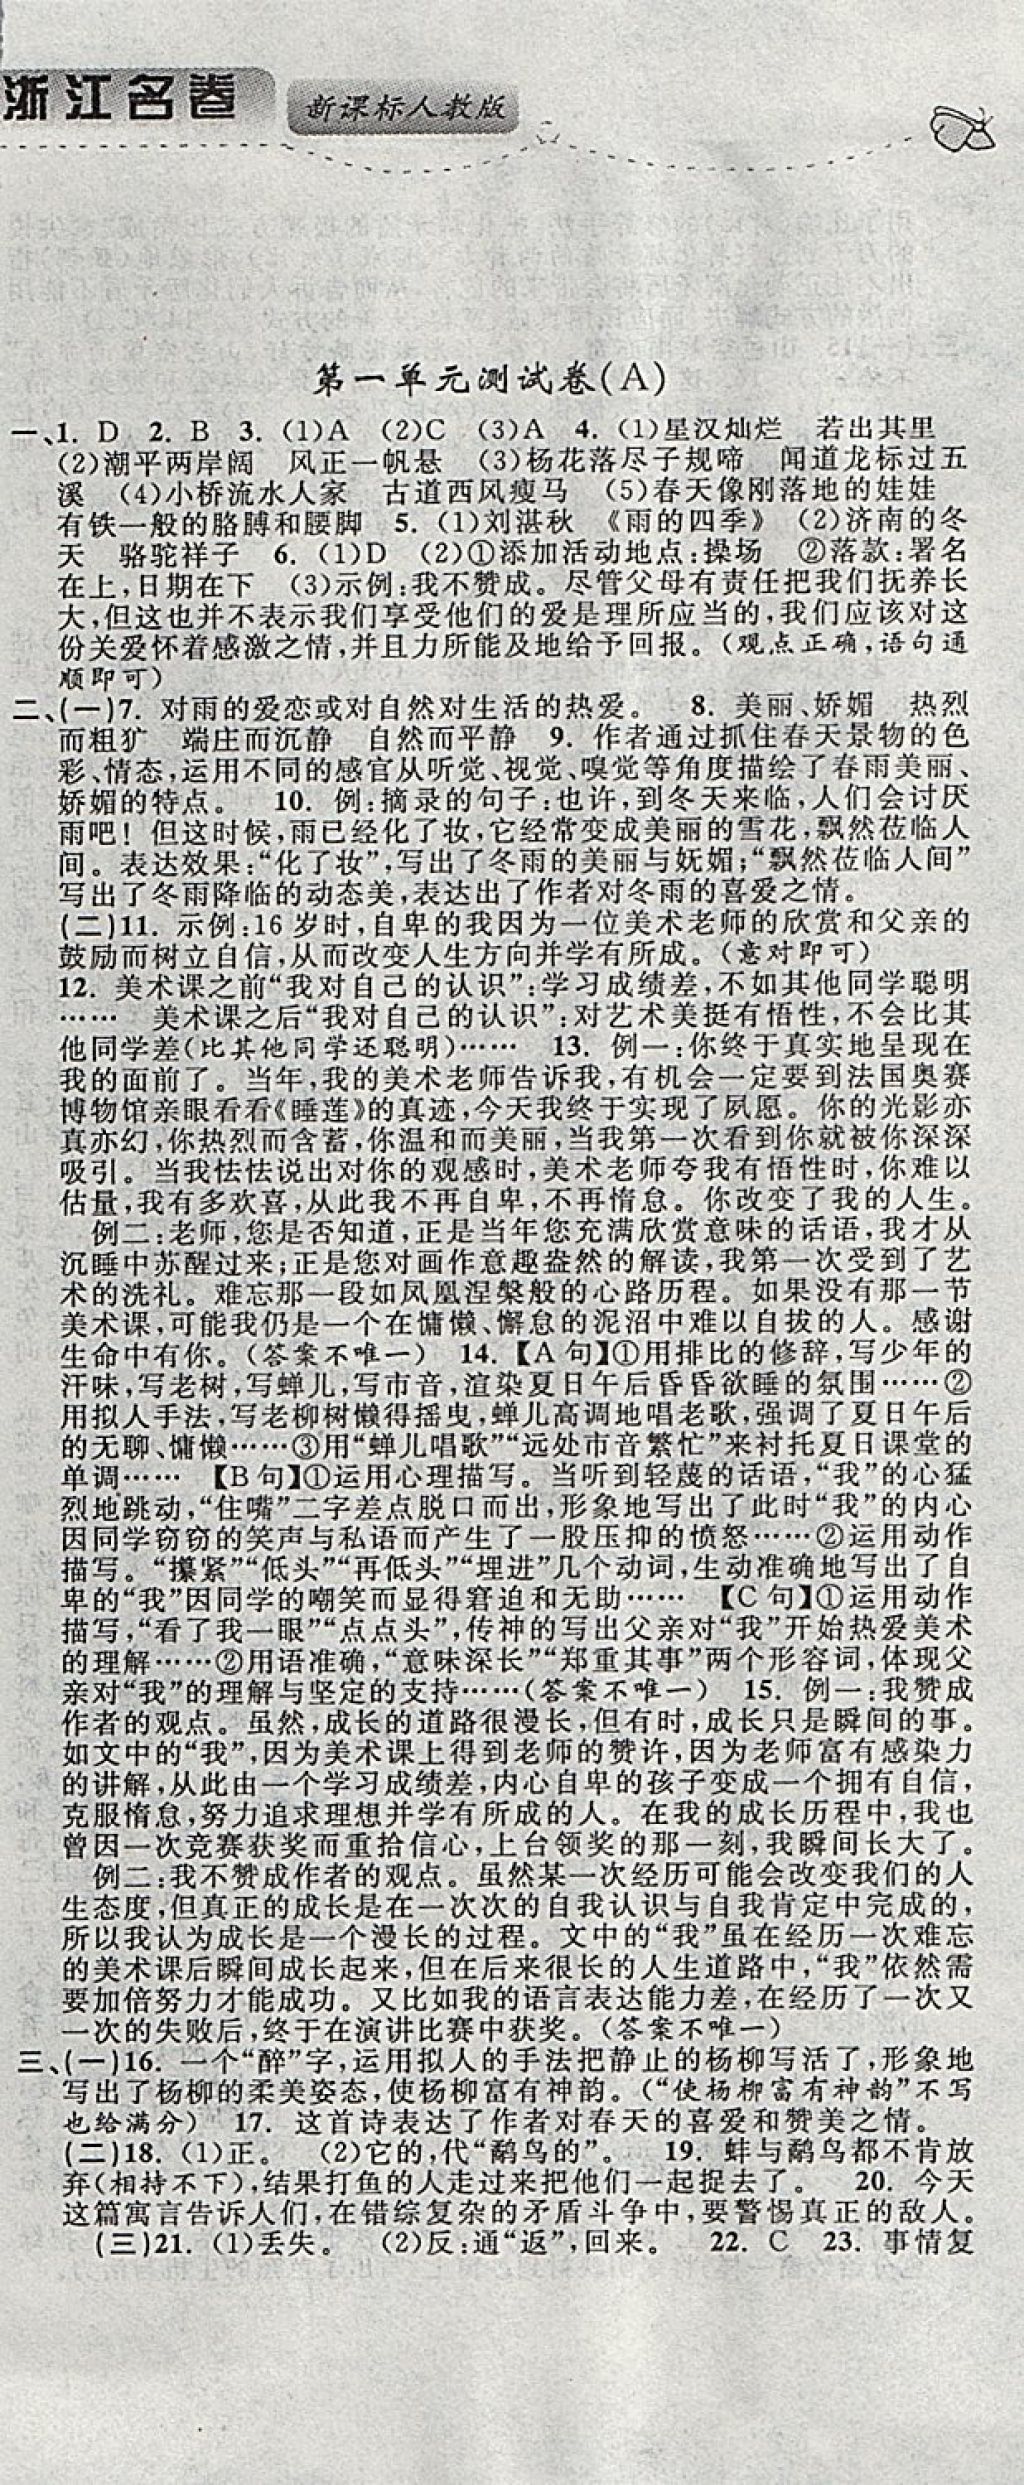 浙江名卷
新课标人教版
第一单元测试卷(A)
一、1. D 2. B 3. (1)A (2)C (3)A 4. (1)星汉灿烂 若出其里
(2)潮平两岸阔 风正一帆悬 (3)杨花落尽子规啼 闻道龙标过五
溪 (4)小桥流水人家 古道西风瘦马 (5)春天像刚落地的娃娃
有铁一般的胳膊和腰脚 5. (1)刘湛秋 《雨的四季》 (2)济南的冬
天 骆驼祥子 6. (1)D (2)①添加活动地点:操场 ②落款:署名
在上,日期在下 (3)示例:我不赞成。尽管父母有责任把我们抚养长
大,但这也并不表示我们享受他们的爱是理所应当的,我们应该对这
份关爱怀着感激之情,并且力所能及地给予回报。(观点正确,语句通
顺即可)
二、(一)7. 对雨的爱恋或对自然对生活的热爱。 8. 美丽、娇媚 热烈
而粗犷 端庄而沉静 自然而平静 9. 作者通过抓住春天景物的色
彩、情态,运用不同的感官从听觉、视觉、嗅觉等角度描绘了春雨美丽、
娇媚的特点。 10. 例:摘录的句子:也许,到冬天来临,人们会讨厌
雨吧!但这时候,雨已经化了妆,它经常变成美丽的雪花,飘然莅临人
间。表达效果:“化了妆”,写出了冬雨的美丽与妩媚;“飘然莅临人间”
写出了冬雨降临的动态美,表达出了作者对冬雨的喜爱之情。
(二)11. 示例:16岁时,自卑的我因为一位美术老师的欣赏和父亲的
鼓励而树立自信,从而改变人生方向并学有所成。(意对即可)
12. 美术课之前“我对自己的认识”:学习成绩差,不如其他同学聪明
…… 美术课之后“我对自己的认识”:对艺术美挺有悟性,不会比其
他同学差(比其他同学还聪明)…… 13. 例一:你终于真实地呈现在
我的面前了。当年,我的美术老师告诉我,有机会一定要到法国奥赛
博物馆亲眼看看《睡莲》的真迹,今天我终于实现了夙愿。你的光影亦
真亦幻,你热烈而含蓄,你温和而美丽,当我第一次看到你就被你深深
吸引。当我怯怯说出对你的观感时,美术老师夸我有悟性时,你难以
估量,我有多欢喜,从此我不再自卑,不再惰怠。你改变了我的人生。
例二:老师,您是否知道,正是当年您充满欣赏意味的话语,我才从
沉睡中苏醒过来;正是您对画作意趣盎然的解读,我第一次受到了艺
术的洗礼。难忘那一段如凤凰涅槃般的心路历程。如果没有那一节
美术课,可能我仍是一个在慵懒、懈怠的泥沼中难以自拔的人。感谢
生命中有你。(答案不唯一) 14. 【A句】①用排比的修辞,写少年的
汗味,写老树,写蝉儿,写市音,渲染夏日午后昏昏欲睡的氛围……②
用拟人手法,写老柳树懒得摇曳,蝉儿高调地唱老歌,强调了夏日午后
的无聊、慵懒……③用“蝉儿唱歌”“远处市音繁忙”来衬托夏日课堂的
单调…… 【B句】①运用心理描写。当听到轻蔑的话语,“我”的心猛
烈地跳动,“住嘴”二字差点脱口而出,形象地写出了此时“我”的内心
因同学窃窃的笑声与私语而产生了一股压抑的愤怒……②运用动作
描写。“攥紧”“低头”“再低头”“埋进”几个动词,生动准确地写出了自
卑的“我”因同学的嘲笑而显得窘迫和无助…… 【C句】①运用动作
描写,“看了我一眼”“点点头”,传神的写出父亲对“我”开始热爱美术
的理解……②用语准确,“意味深长”“郑重其事”两个形容词,体现父
亲对“我”的理解与坚定的支持……(答案不唯一) 15. 例一:我赞成
作者的观点。虽然,成长的道路很漫长,但有时,成长只是瞬间的事。
如文中的“我”,因为美术课上得到老师的赞许,因为老师富有感染力
的讲解,从此由一个学习成绩差,内心自卑的孩子变成一个拥有自信,
克服惰怠,努力追求理想并学有所成的人。在我的成长历程中,我也
曾因一次竞赛获奖而重拾信心,上台领奖的那一刻,我瞬间长大了。
例二:我不赞成作者的观点。虽然某一次经历可能会改变我们的人
生态度,但真正的成长是在一次次的自我认识与自我肯定中完成的,
所以我认为成长是一个漫长的过程。文中的“我”虽在经历一次难忘
的美术课后瞬间成长起来,但在后来很长的人生道路中,“我”依然需
要加倍努力才能成功。又比如我的语言表达能力差,在经历了一次又
一次的失败后,终于在演讲比赛中获奖。(答案不唯一)
三、(一)16. 一个“醉”字,运用拟人的手法把静止的杨柳写活了,形象地
写出了杨柳的柔美姿态,使杨柳富有神韵。(“使杨柳富有神韵”不写
也给满分) 17. 这首诗表达了作者对春天的喜爱和赞美之情。
(二)18. (1)正。 (2)它的,代“鹬鸟的”。 19. 蚌与鹬鸟都不肯放
弃(相持不下),结果打鱼的人走过来把他们一起捉去了。 20. 今天
这篇寓言告诉人们,在错综复杂的矛盾斗争中,要警惕真正的敌人。
(三)21. (1)丢失。 (2)反:通“返”,回来。 22. C 23. 事情复